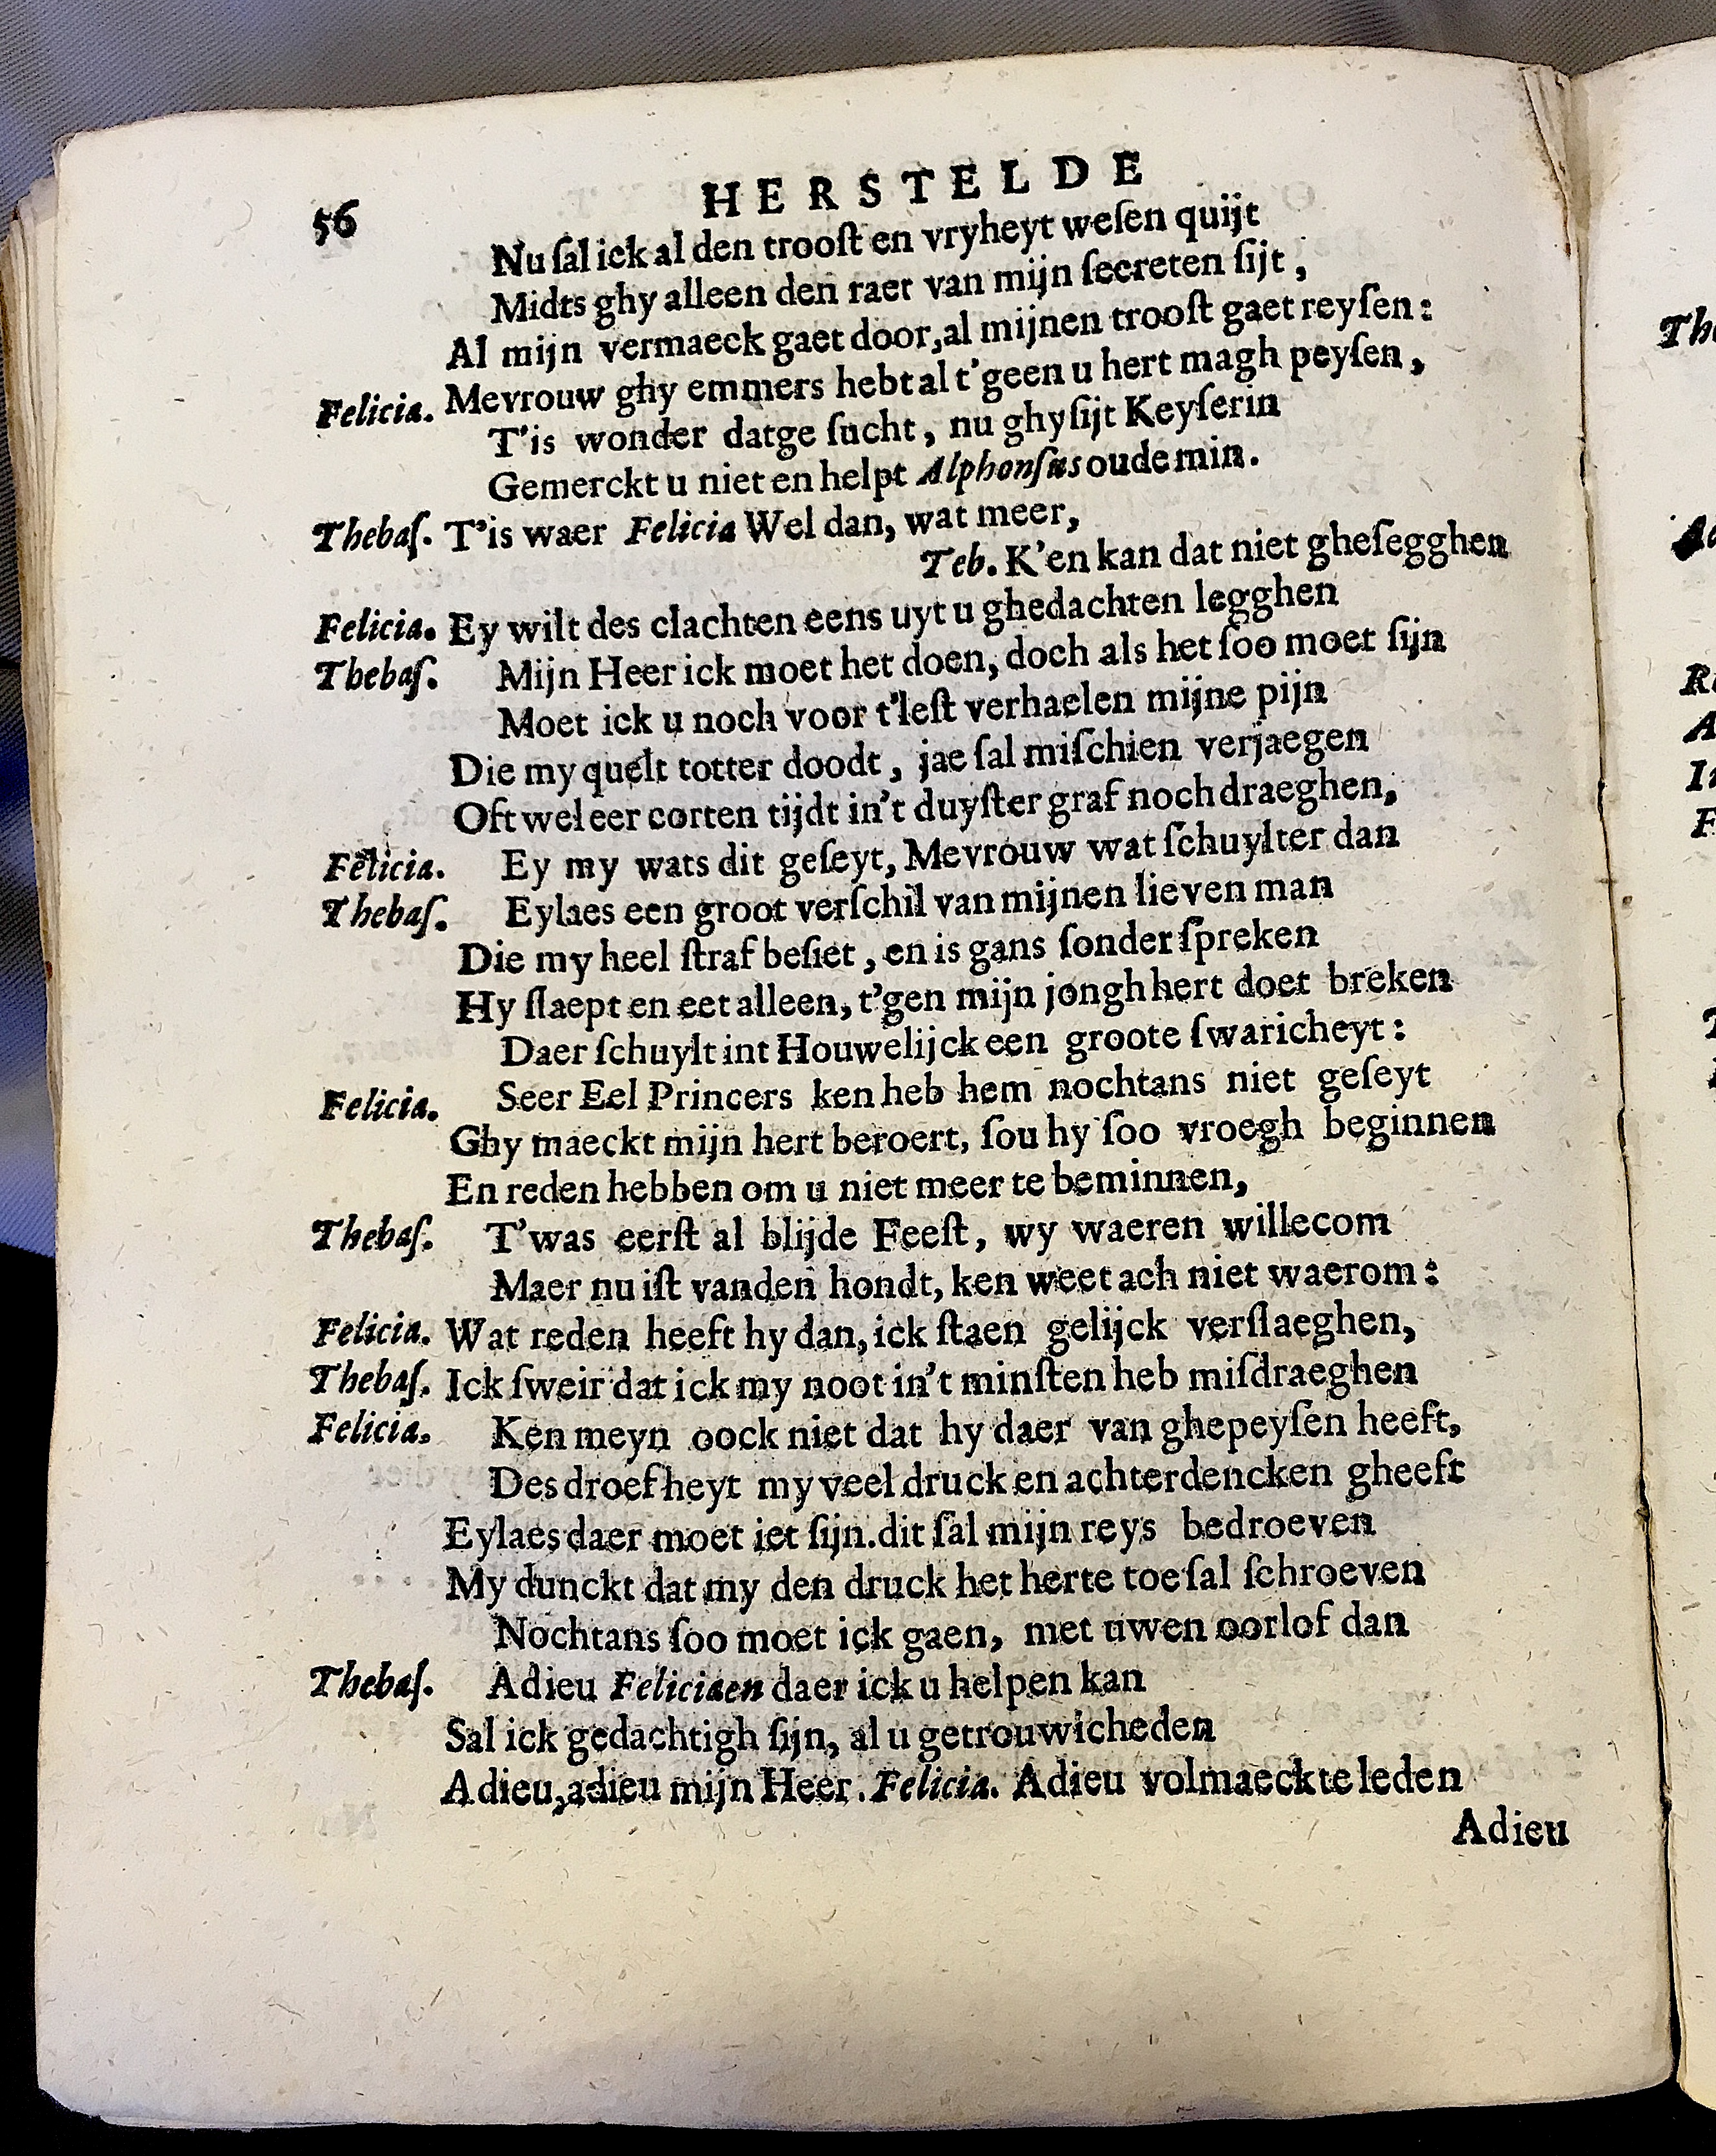 56 HERSTELDE
Nu ſal ick al den trooſt en vryheyt weſen quijt
Midts ghy alleen den raet van mijn ſecreten ſijt,
Al mijn vermaeck gaet door, al mijnen trooſt gaet reyſen:
Felicia. Mevrouw ghy emmers hebt al t'geen u hert magh peyſen,
T'is wonder datge ſucht, nu ghy ſijt Keyſerin
Gemerckt u niet en helpt Alphonſus oude min.
Thebaſ. T'is waer Felicia Wel dan, wat meer,
Teb. K'en kan dat niet gheſegghen
Felicia. Ey wilt des clachten eens uyt u ghedachten legghen
Thebaſ. Mijn Heer ick moet het doen, doch als het ſoo moet ſijn
Moet ick u noch voor t'leſt verhaelen mijne pijn
Die my quelt totter doodt, jae ſal miſchien verjaegen
Oft wel eer corten tijdt in't duyſter graf noch draeghen,
Felicia. Ey my wats dit geſeyt, Mevrouw wat ſchuylter dan
Thebaſ. Eylaes een groot verſchil van mijnen lieven man
Die my heel ſtraf beſiet, en is gans ſonder ſpreken
Hy ſlaept en eet alleen, t'gen mijn jongh hert doet breken
Daer ſchuylt int Houwelijck een groote ſwaricheyt:
Felicia. Seer Eel Princers ken heb hem nochtans niet geſeyt
Ghy maeckt mijn hert beroert, ſou hy ſoo vroegh beginnen
En reden hebben om u niet meer te beminnen,
Thebaſ. T'was eerſt al blijde Feeſt, wy waeren willecom
Maer nu iſt vanden hondt, ken weet ach niet waerom:
Felicia. Wat reden heeft hy dan, ick ſtaen gelijck verſlaeghen,
Thebaſ. Ick ſweir dat ick my noot in't minſten heb miſdraeghen
Felicia. Ken meyn oock niet dat hy daer van ghepeyſen heeft,
Des droefheyt my veel druck en achterdencken gheeft
Eylaes daer moet iet ſijn. dit ſal mijn reys bedroeven
My dunckt dat my den druck het herte toe ſal ſchroeven
Nochtans ſoo moet ick gaen, met uwen oorlof dan
Thebaſ. Adieu Feliciaen daer ick u helpen kan
Sal ick gedachtigh ſijn, al u getrouwicheden
Adieu, adieu mijn Heer. Felicia. Adieu volmaeckte leden
Adieu